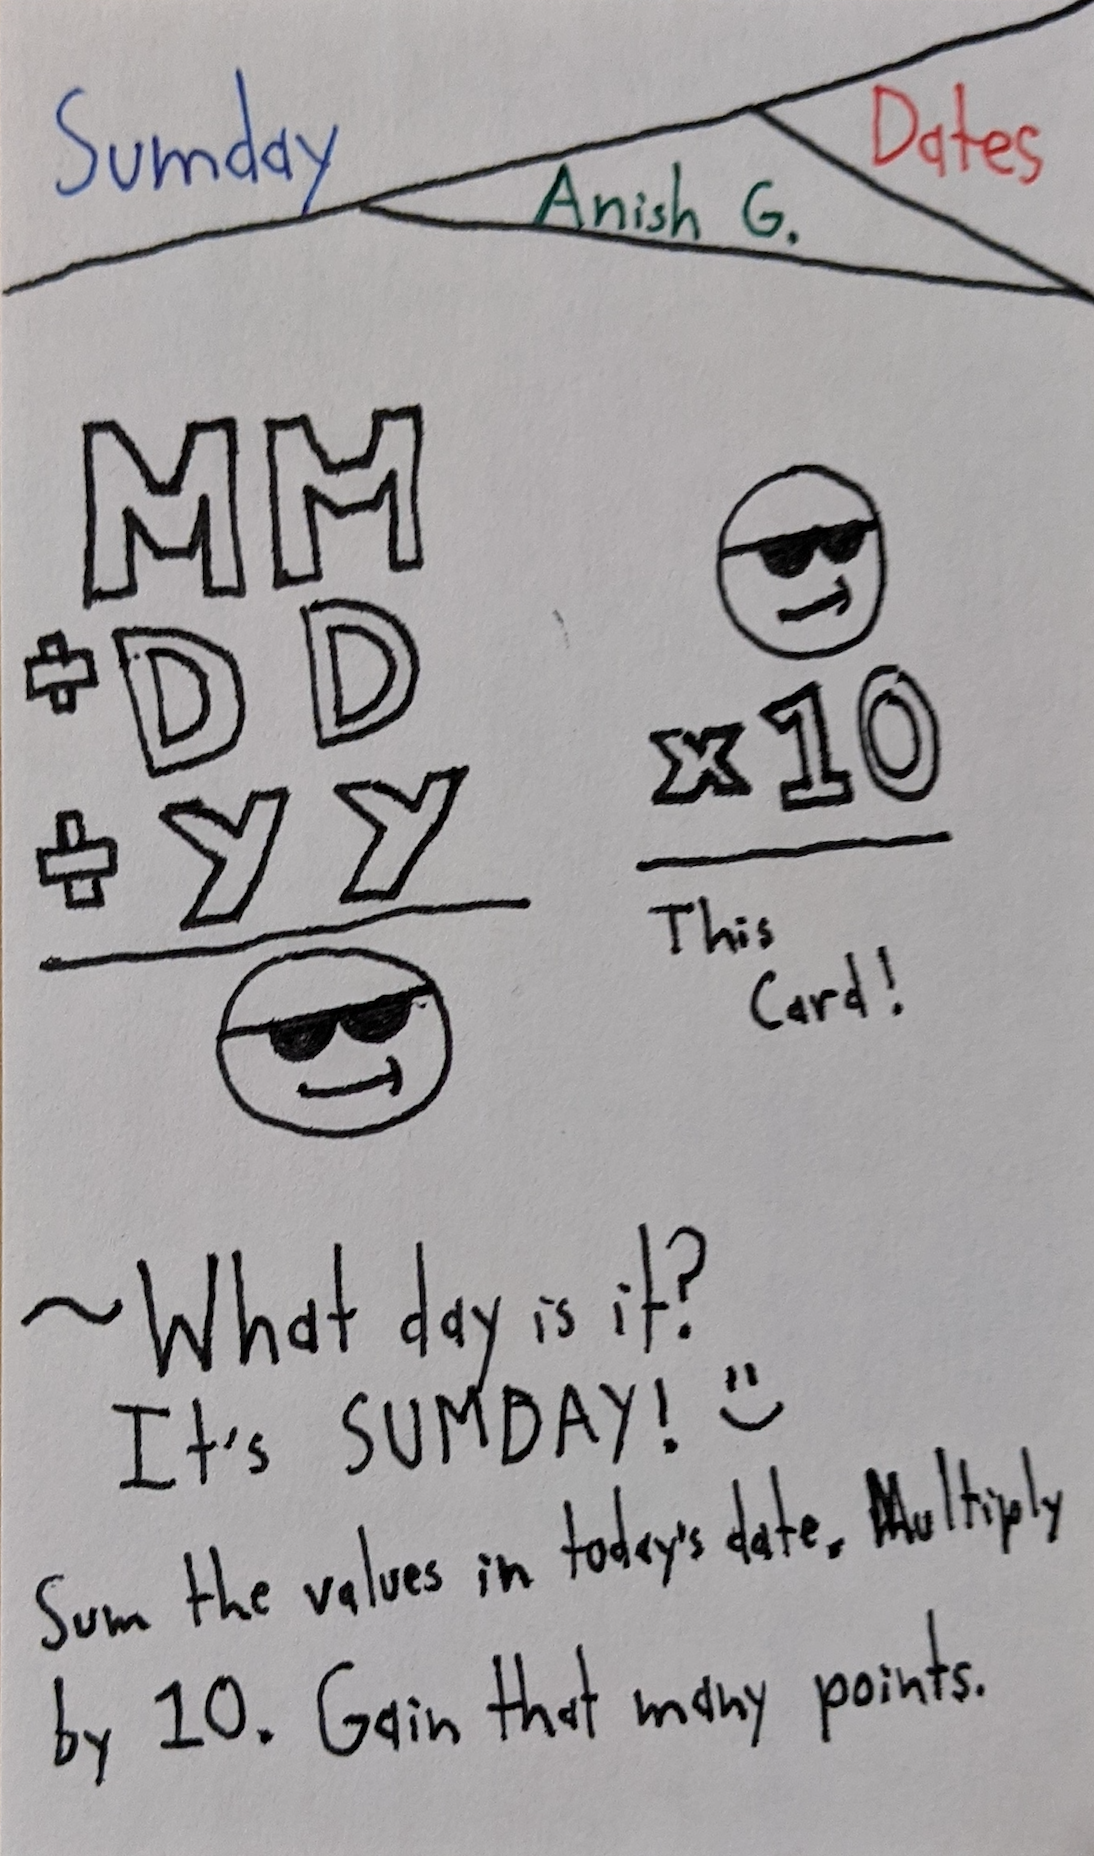 Sumday
Anish G.
Dates
MM
+DD
+YY
x10
This
Card!
~What day is it?
It's SUMDAY! :)
Sum the values in today's date. Multiply
by 10. Gain that many points.